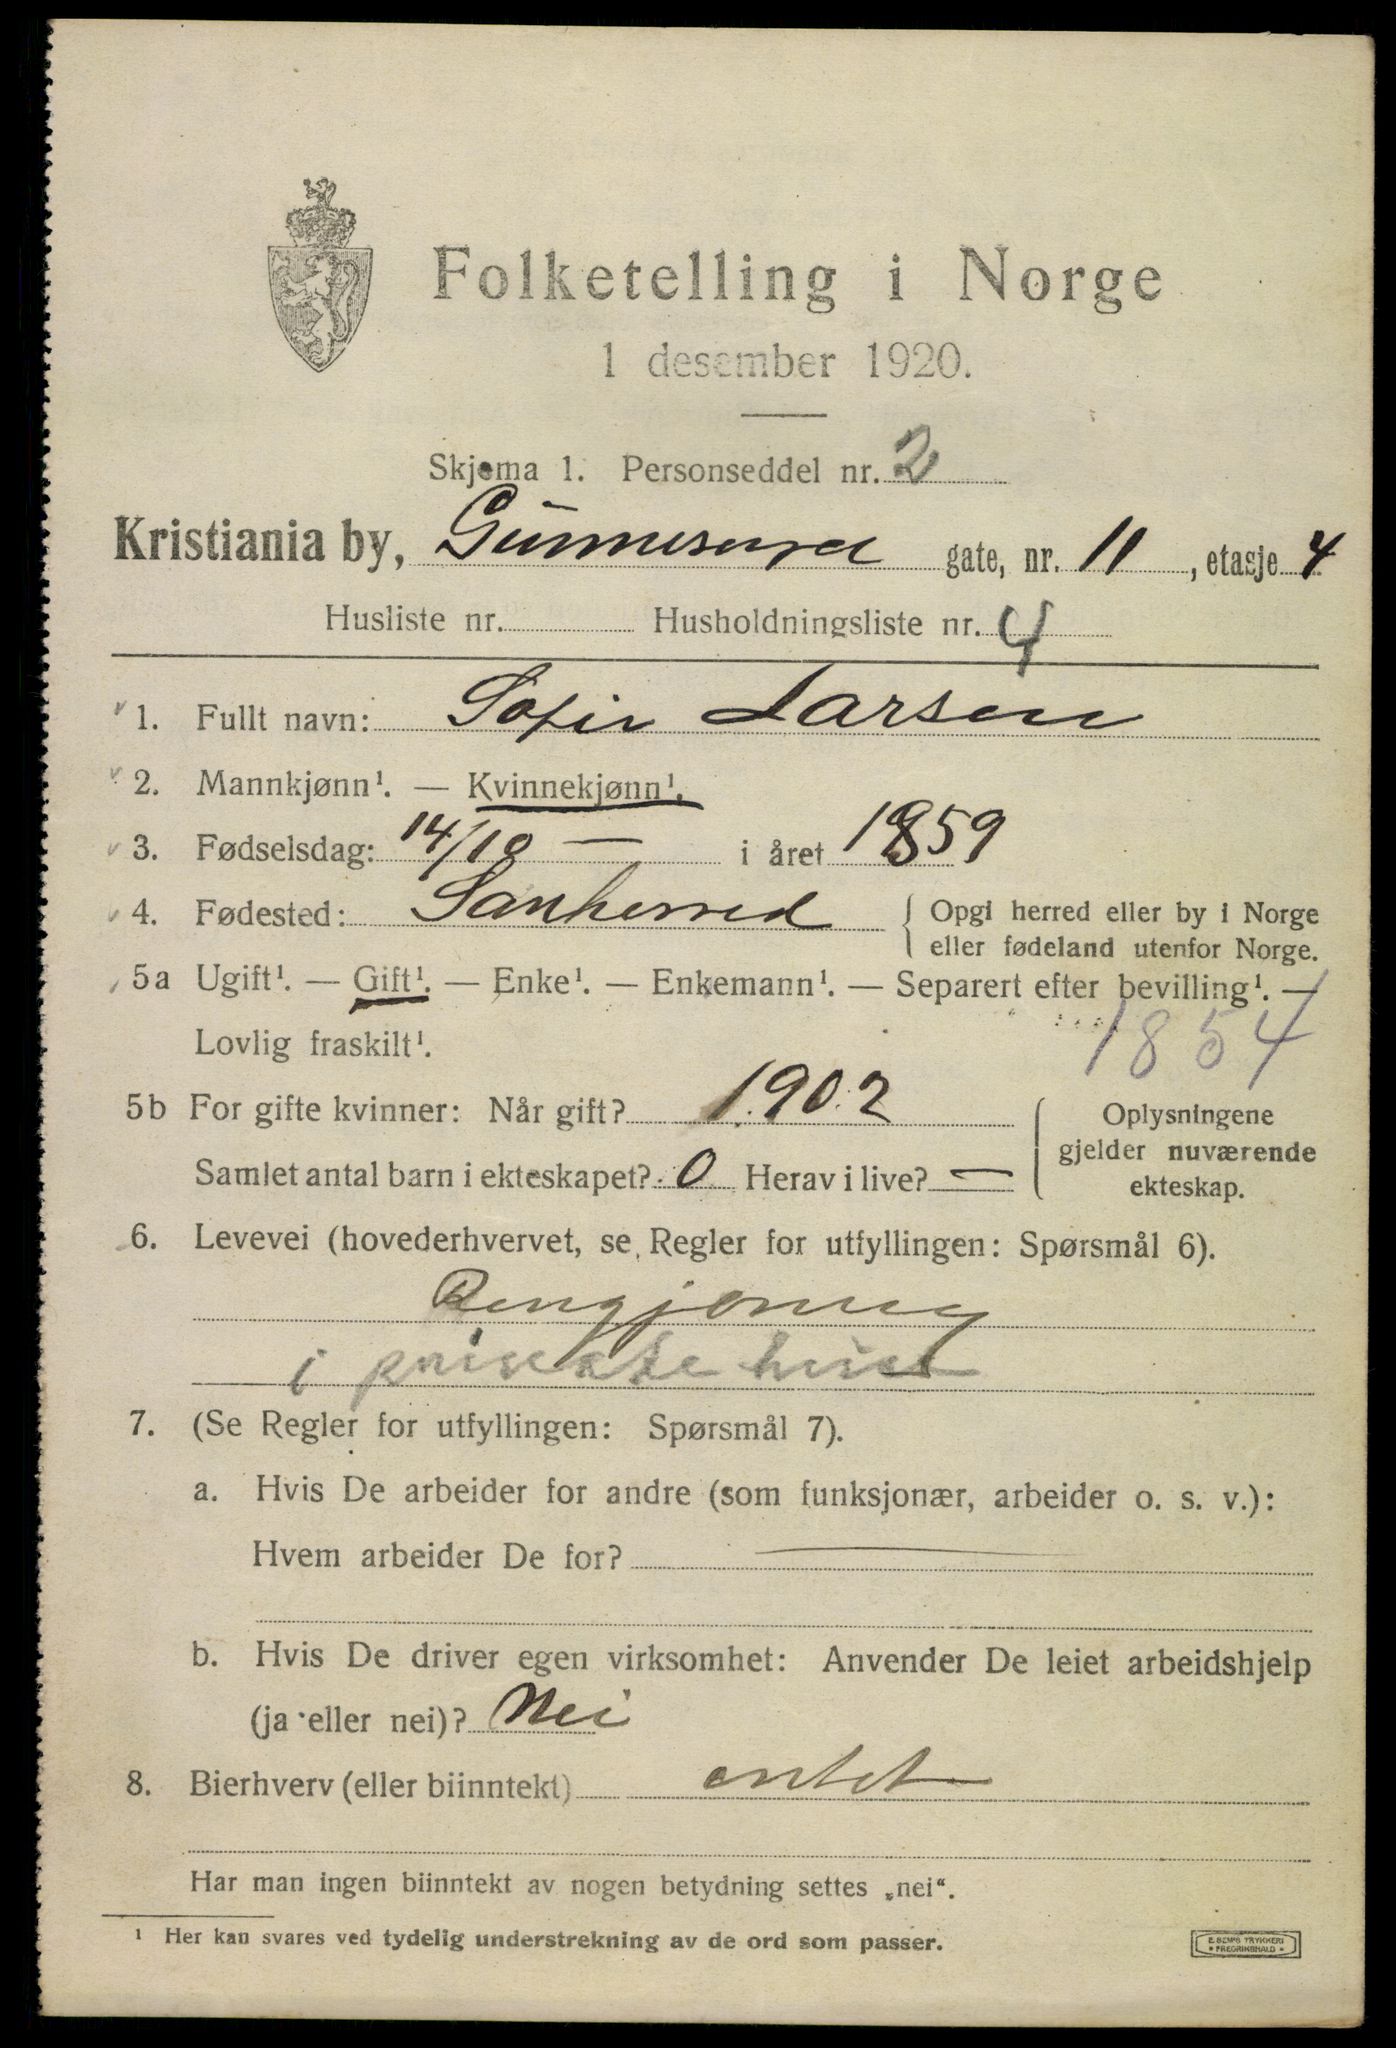 Folketelling i Norge
1 desember 1920.
Skjema 1. Personseddel nr. 2
Kristiania by, gate, nr. 11, etasje 4
Husliste nr. Husholdningsliste nr. 4
1. Fullt navn: Sofie Larsen
2. Mannkjønn¹. — Kvinnekjønn¹.
3. Fødselsdag: 14/10 — i året 1859
4. Fødested: Sanherred { Opgi herred eller by i Norge
eller fødeland utenfor Norge.
5a Ugift¹. — Gift¹. — Enke¹. — Enkemann¹. — Separert efter bevilling¹. —
Lovlig fraskilt¹.
1854
5b For gifte kvinner: Når gift? 1902
Samlet antal barn i ekteskapet? 0 Herav i live? —
{ Oplysningene
gjelder nuværende
ekteskap.
6. Levevei (hovederhvervet, se Regler for utfyllingen: Spørsmål 6).
Rengjøring
i private hus
7. (Se Regler for utfyllingen: Spørsmål 7).
a. Hvis De arbeider for andre (som funksjonær, arbeider o. s. v.):
Hvem arbeider De for? —
b. Hvis De driver egen virksomhet: Anvender De leiet arbeidshjelp
(ja eller nei)? Nei
8. Bierhverv (eller biinntekt) intet
Har man ingen biinntekt av nogen betydning settes „nei“.
¹ Her kan svares ved tydelig understrekning av de ord som passer.
E. SEM'S TRYKKERI
• FREDRIKSHALD •